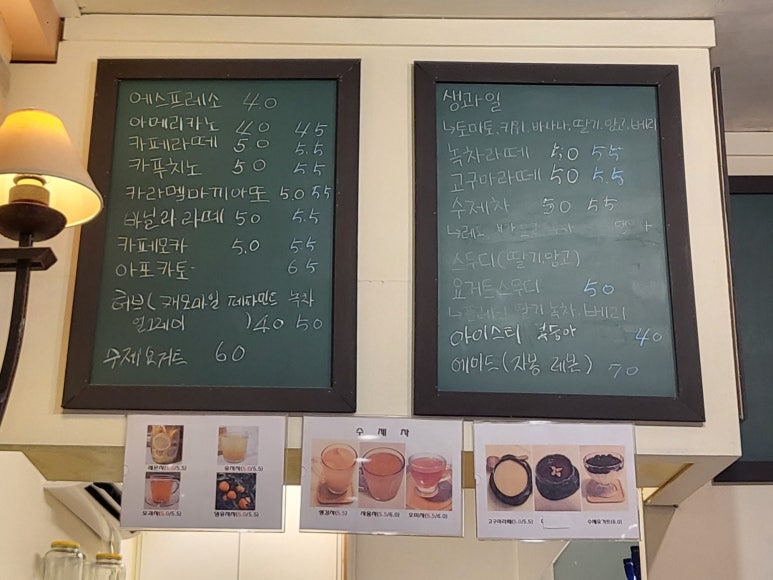 에스프레소 4.0
아메리카노 4.0 4.5
카페라떼 5.0 5.5
카푸치노 5.0 5.5
카라멜마끼아또 5.0 5.5
바닐라라떼 5.0 5.5
카페모카 5.0 5.5
아포카토 6.5
허브( 캐모마일 페파민트 녹차
얼그레이 ) 4.0 5.0
수제요거트 6.0
생과일
↳토마토, 키위, 바나나, 딸기, 망고, 베리
녹차라떼 5.0 5.5
고구마라떼 5.0 5.5
수제차 5.0 5.5
스무디(딸기망고)
요거트스무디 5.0
↳플레인 딸기 녹차, 베리
아이스티 복숭아 4.0
에이드(자몽 레몬) 7.0
레몬차(5.0/5.5) 유자차(5.0/5.5)
모과차(5.0/5.5) 댕유자차(5.0/5.5)
수 제 차
생강차(5.5) 자몽차(5.5/6.0) 오미차(5.5/6.0)
고구마라떼(5.0/5.5) 수제요거트(6.0)